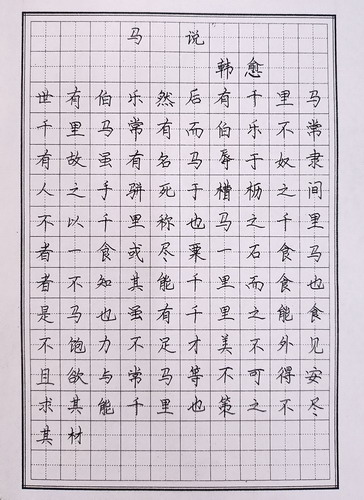 马 说
韩愈
世有伯乐然后有千里马
千里马常有而伯乐不常
有故虽有名马辱于奴隶
人之手骈死于槽枥之间
不以千里称也马之千里
者一食或尽粟一石食马
者不知其能千里而食也
是马也虽有千里之能食
不饱力不足才美不外见
且欲与常马等不可得安
求其能千里也策之不尽
其材